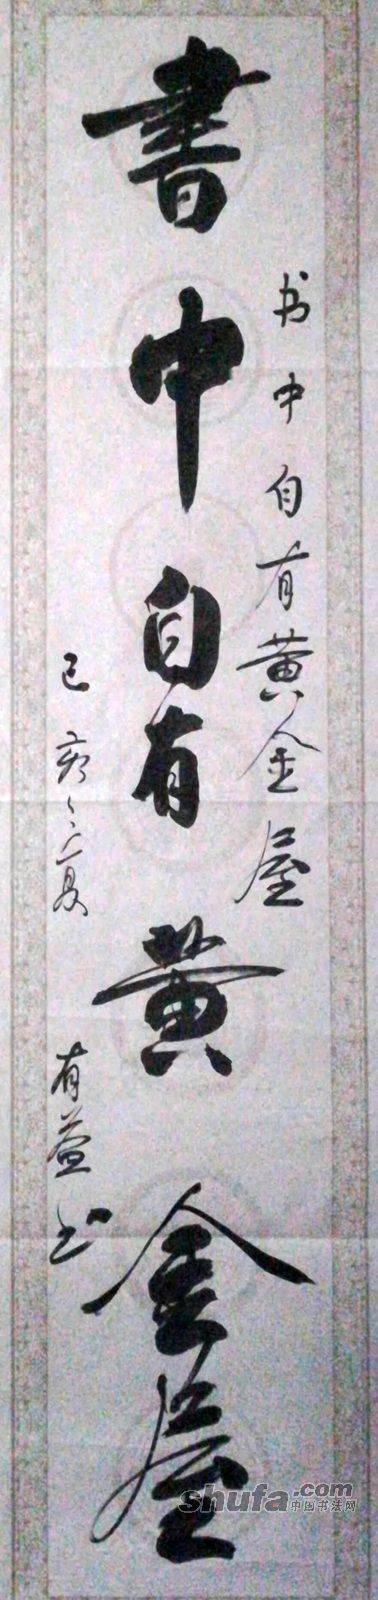 書中自有黄金屋
书中自有黄金屋
己亥之夏
有益书
shufa.com
中国书法网